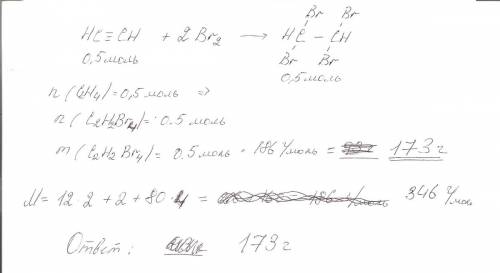 Br Br
HC≡CH + 2Br₂ → HC – CH
Br Br
0,5моль 0,5моль
n(C₂H₄)=0,5моль ⇒
n(C₂H₂Br₄)= 0.5моль
m(C₂H₂Br₄)= 0.5моль · 186 г/моль = 173г
M= 12·2+2+80·4 = 346 г/моль
Ответ: 173г